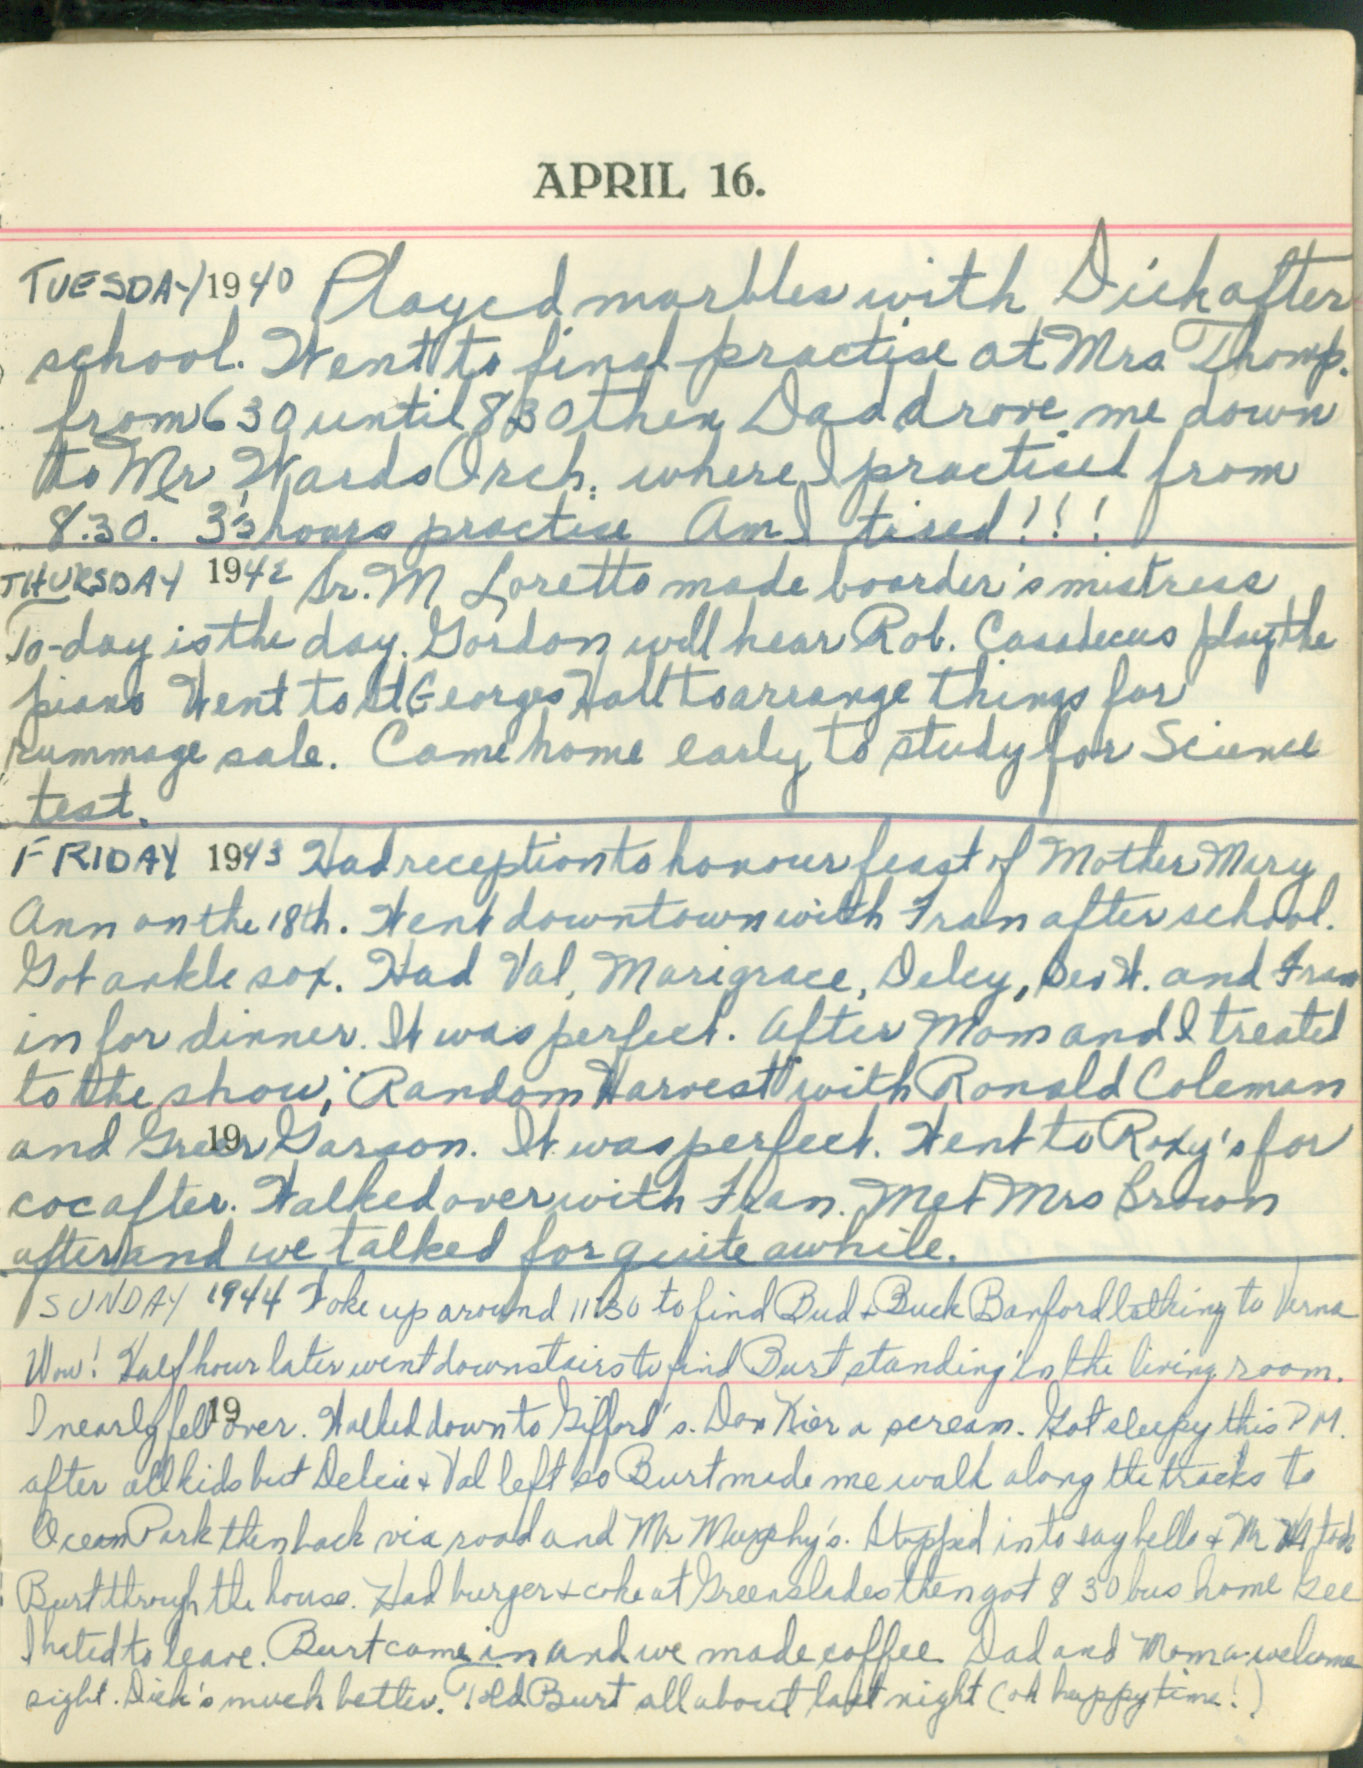 APRIL 16.
TUESDAY 1940 Played marbles with Dick after
school. Went to final practise at Mrs. Thomp.
from 6 30 until 8 30 then Dad drove me down
to Mr Wards Orch. where I practised from
8.30. 3½ hours practise Am I tired!!!
THURSDAY 1942 Sr. M Loretto made boarder's mistress
To-day is the day. Gordon will hear Rob. Casadecus play the
piano Went to St Georges Hall to arrange things for
rummage sale. Came home early to study for Science
test.
FRIDAY 1943 Had reception to honour feast of Mother Mary
Ann on the 18th. Went downtown with Fran after school.
Got ankle sox. Had Val, Marigrace, Delcy, Bev W. and Fran
in for dinner. It was perfect. After Mom and I treated
to the show, "Random Harvest" with Ronald Coleman
and Greer Garson. It was perfect. Went to Roxy's for
19
coc after. Walked over with Fran. Met Mrs Brown
after and we talked for quite awhile.
SUNDAY 1944 Woke up around 11:30 to find Bud + Buck Banford talking to Verna
Wow! Half hour later went downstairs to find Burt standing in the living room.
19
I nearly fell over. Walked down to Gifford's. Don Kier a scream. Got sleepy this P M.
after all kids but Delcie + Val left so Burt made me walk along the tracks to
Ocean Park then back via road and Mr Murphy's. Stopped in to say hello + Mr M took
Burt through the house. Had burger + coke at Greenslades then got 8 30 bus home Gee
I hated to leave. Burt came in and we made coffee Dad and Mom a welcome
sight. Dick's much better. Told Burt all about last night (oh happy time!)